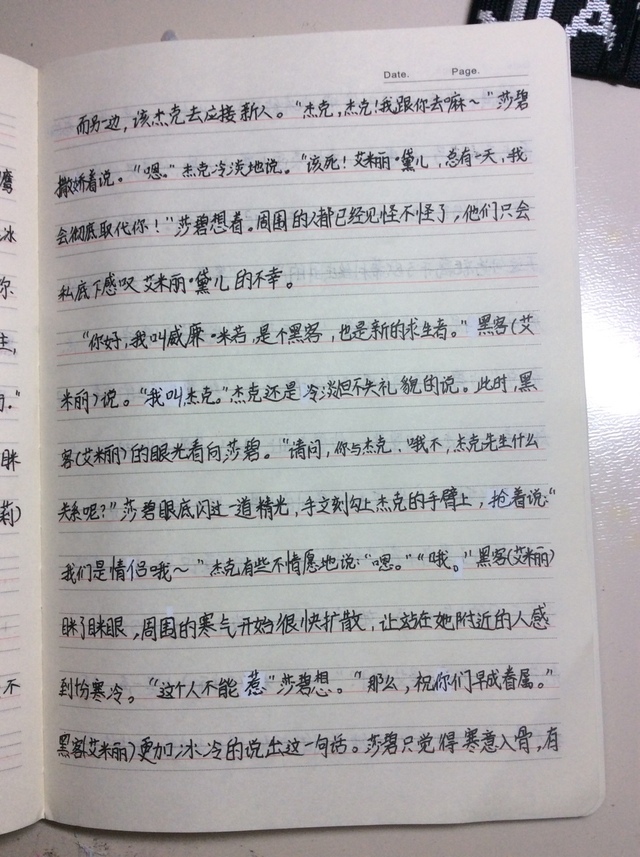 Date.
Page.
而另一边，该杰克去应接新人。“杰克，杰克！我跟你去嘛～”莎碧
撒娇着说。“嗯。”杰克冷淡地说。“该死！艾米丽·黛儿，总有一天，我
会彻底取代你！”莎碧想着。周围的人都已经见怪不怪了，他们只会
私底下感叹艾米丽·黛儿的不幸。
“你好，我叫威廉·米若，是个黑客，也是新的求生者。”黑客(艾
米丽)说。“我叫杰克。”杰克还是冷淡但不失礼貌的说。此时，黑
客(艾米丽)的眼光看向莎碧。“请问，你与杰克、哦不，杰克先生什么
关系呢？”莎碧眼底闪过一道精光，手立刻勾上杰克的手臂上，抢着说：“
我们是情侣哦～”杰克有些不情愿地说：“嗯。”“哦。”黑客(艾米丽)
眯了眯眼，周围的寒气开始很快扩散，让站在她附近的人感
到怕寒冷。“这个人不能惹”莎碧想。“那么，祝你们早成眷属。”
黑客(艾米丽)更加冰冷的说出这一句话。莎碧只觉得寒意入骨，有
鹰
冰
尔
主，
眯
莉)
不